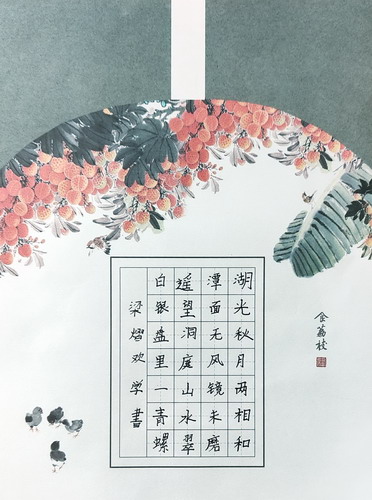 食荔枝
湖光秋月两相和
潭面无风镜未磨
遥望洞庭山水翠
白银盘里一青螺
梁熠欢学書